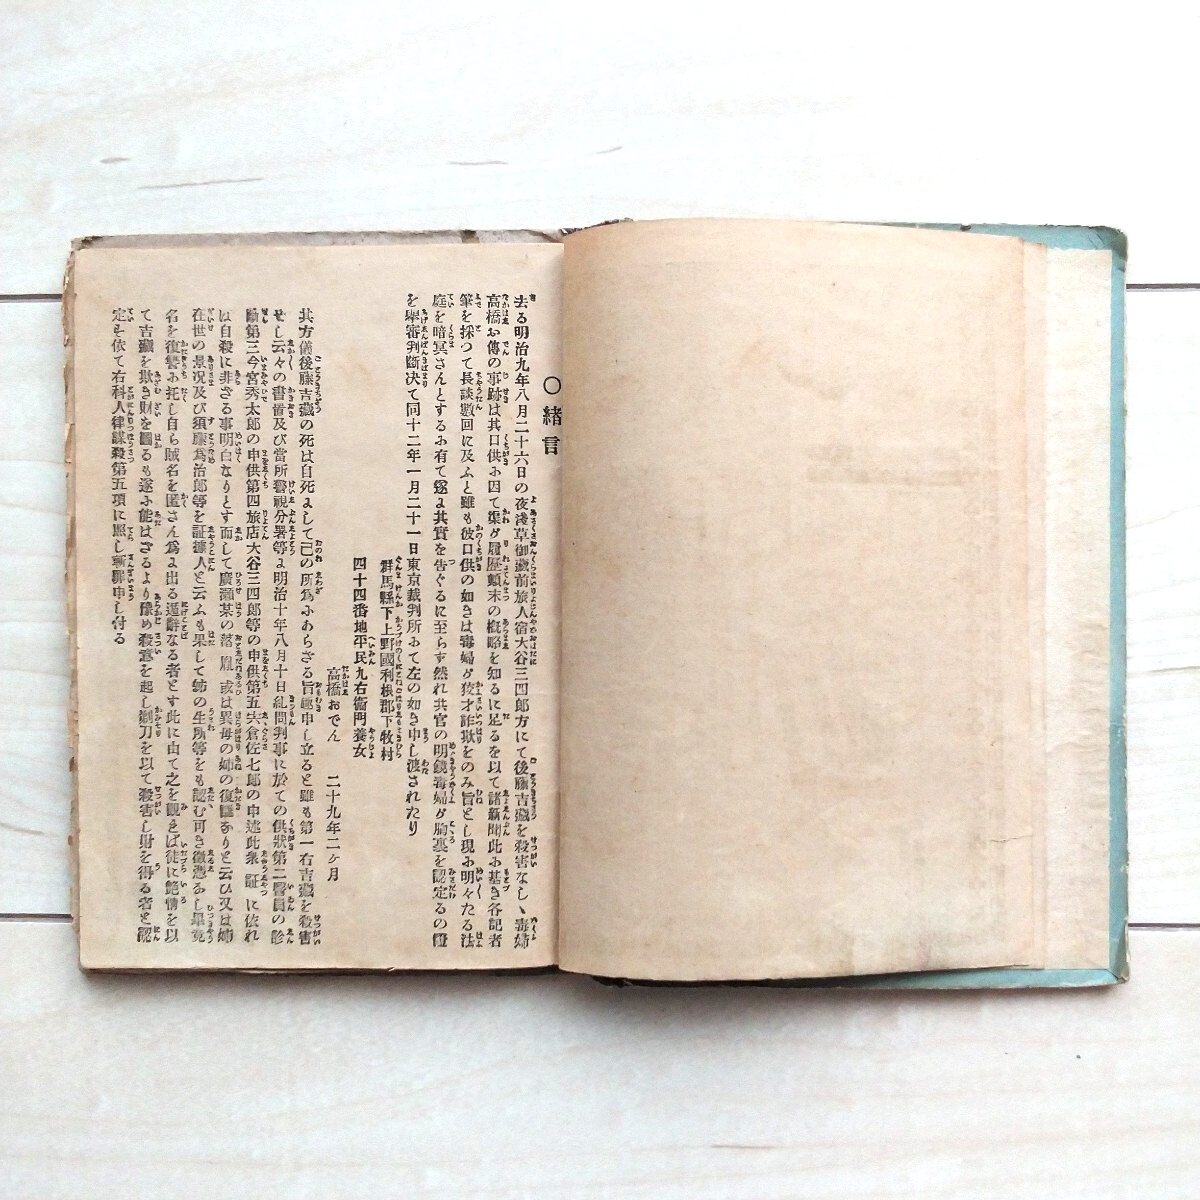 〇緒言
去る明治九年八月二十六日の夜淺草御藏前旅人宿大谷三四郎方にて後藤吉藏を殺害なしゝ毒婦
高橋お傳の事跡は其口供お因て渠が履歴顛末の概略を知るに足るを以て諸新聞此お基き各記者
筆を採つて長談數回に及ふと雖も彼口供の如きは毒婦が狡才詐欺をのみ旨とし現お明々たる法
庭を暗冥さんとするお有て遂よ其實を告ぐるに至らす然れ共官の明鏡毒婦が胸裏を認定るの證
を擧審判斷决て同十二年一月二十一日東京裁判所おて左の如き申し渡されたり
群馬縣下上野國利根郡下牧村
四十四番地平民九右衞門養女
高橋おでん 二十九年二ヶ月
其方儀後藤吉藏の死は自死よして己の所爲おあらざる旨申し立ると雖も第一右吉藏を殺害
せし云々の書置及び當所警視分署等よ明治十年八月十日糺問判事に於ての供狀第二醫員の診
斷第三今宮秀太郎の申供第四旅店大谷三四郎等の申供第五宍倉佐七郎の申述此衆証に依れ
は自殺に非ざる事明白なりとす而して廣瀬某の落胤或は異母の姉の復讐ありと云ひ又は姉
在世の景况及び須藤爲治郎等を証據人と云ふも果して姉の生所等をも認む可き徴憑なし畢竟
名を復讐お托し自ら賊名を匿さん爲よ出る遁辭なる者とす此に由て之を觀れば徒に艶情を以
て吉藏を欺き財を圖るも遂お能はざるより豫め殺意を起し剃刀を以て殺害し財を得る者と認
定む依て右科人律謀殺第五項に照し斬罪申し付る